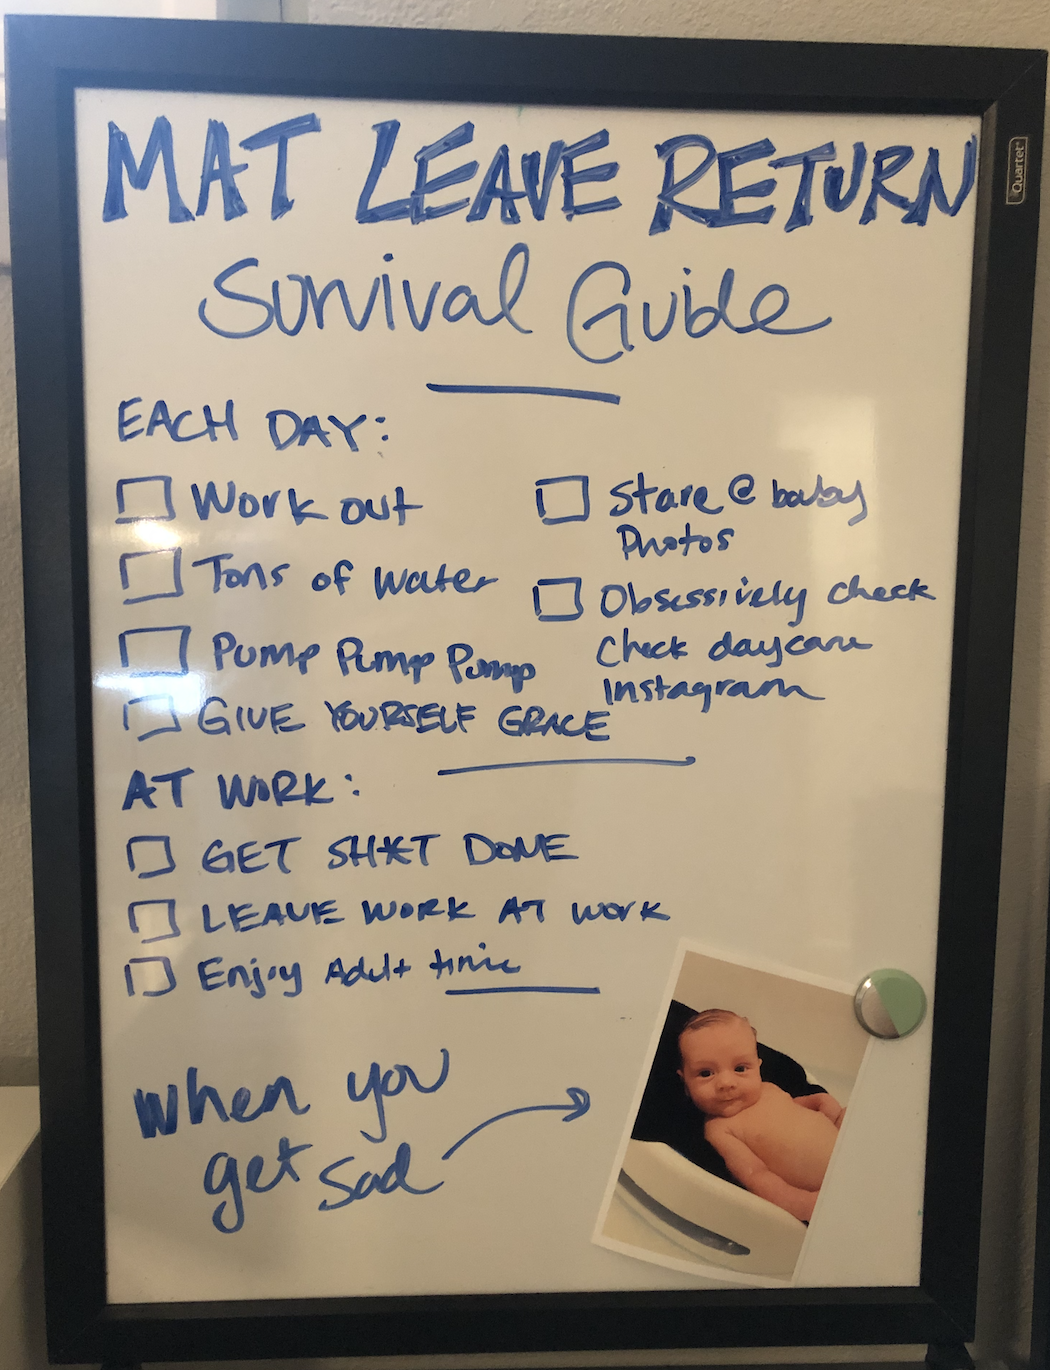 MAT LEAVE RETURN
Survival Guide
EACH DAY:
Work out
Tons of water
Pump Pump Pump
GIVE YOURSELF GRACE
Stare @ baby
Photos
Obsessively check
Check daycare
Instagram
AT WORK:
GET SH*T DONE
LEAVE WORK AT WORK
Enjoy Adult time
When you
get sad
Quartet